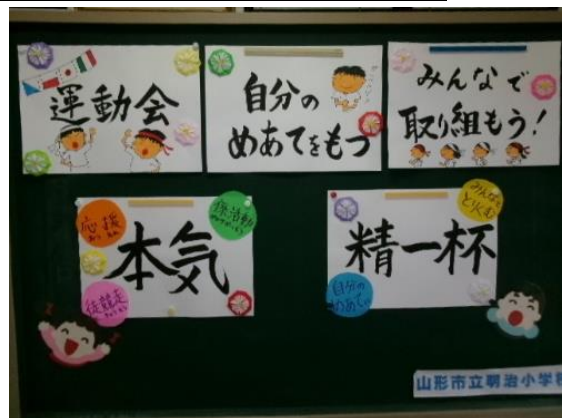 運動会
自分の
めあてをもつ
みんなで
取り組もう!
本気
応援
係活動
徒競走
精一杯
みんなで
とりくむ
自分の
めあて
山形市立明治小学校